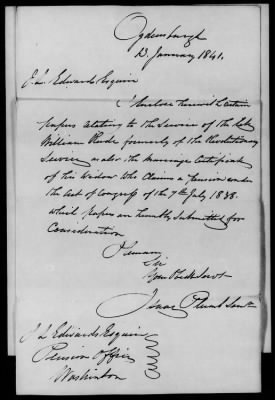 Ogdensburgh
2. January 1841.
J. L. Edwards Esquire
I Enclose herewith Certain
papers relating to the Service of the late
William Rhode formerly of the Revolutionary
Service as also the Marriage Certificate
of his Widow who Claims a pension under
the Act of Congress of the 7th July 1838.
which papers are humbly Submitted for
Consideration
I remain
Sir
Your Obedt Servt
Isaac Plumb
J L Edwards Esquire
Pension Office
Washinton